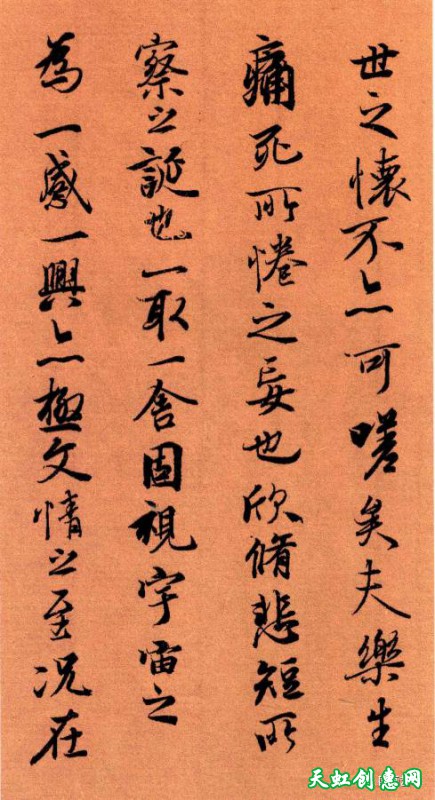 世之懷不亦可嗟矣夫樂生
痛死所惓之妄也欣脩悲短所
察之誕也一取一舍固視宇宙之
為一感一興亦極文情之至況在
天虹创意网